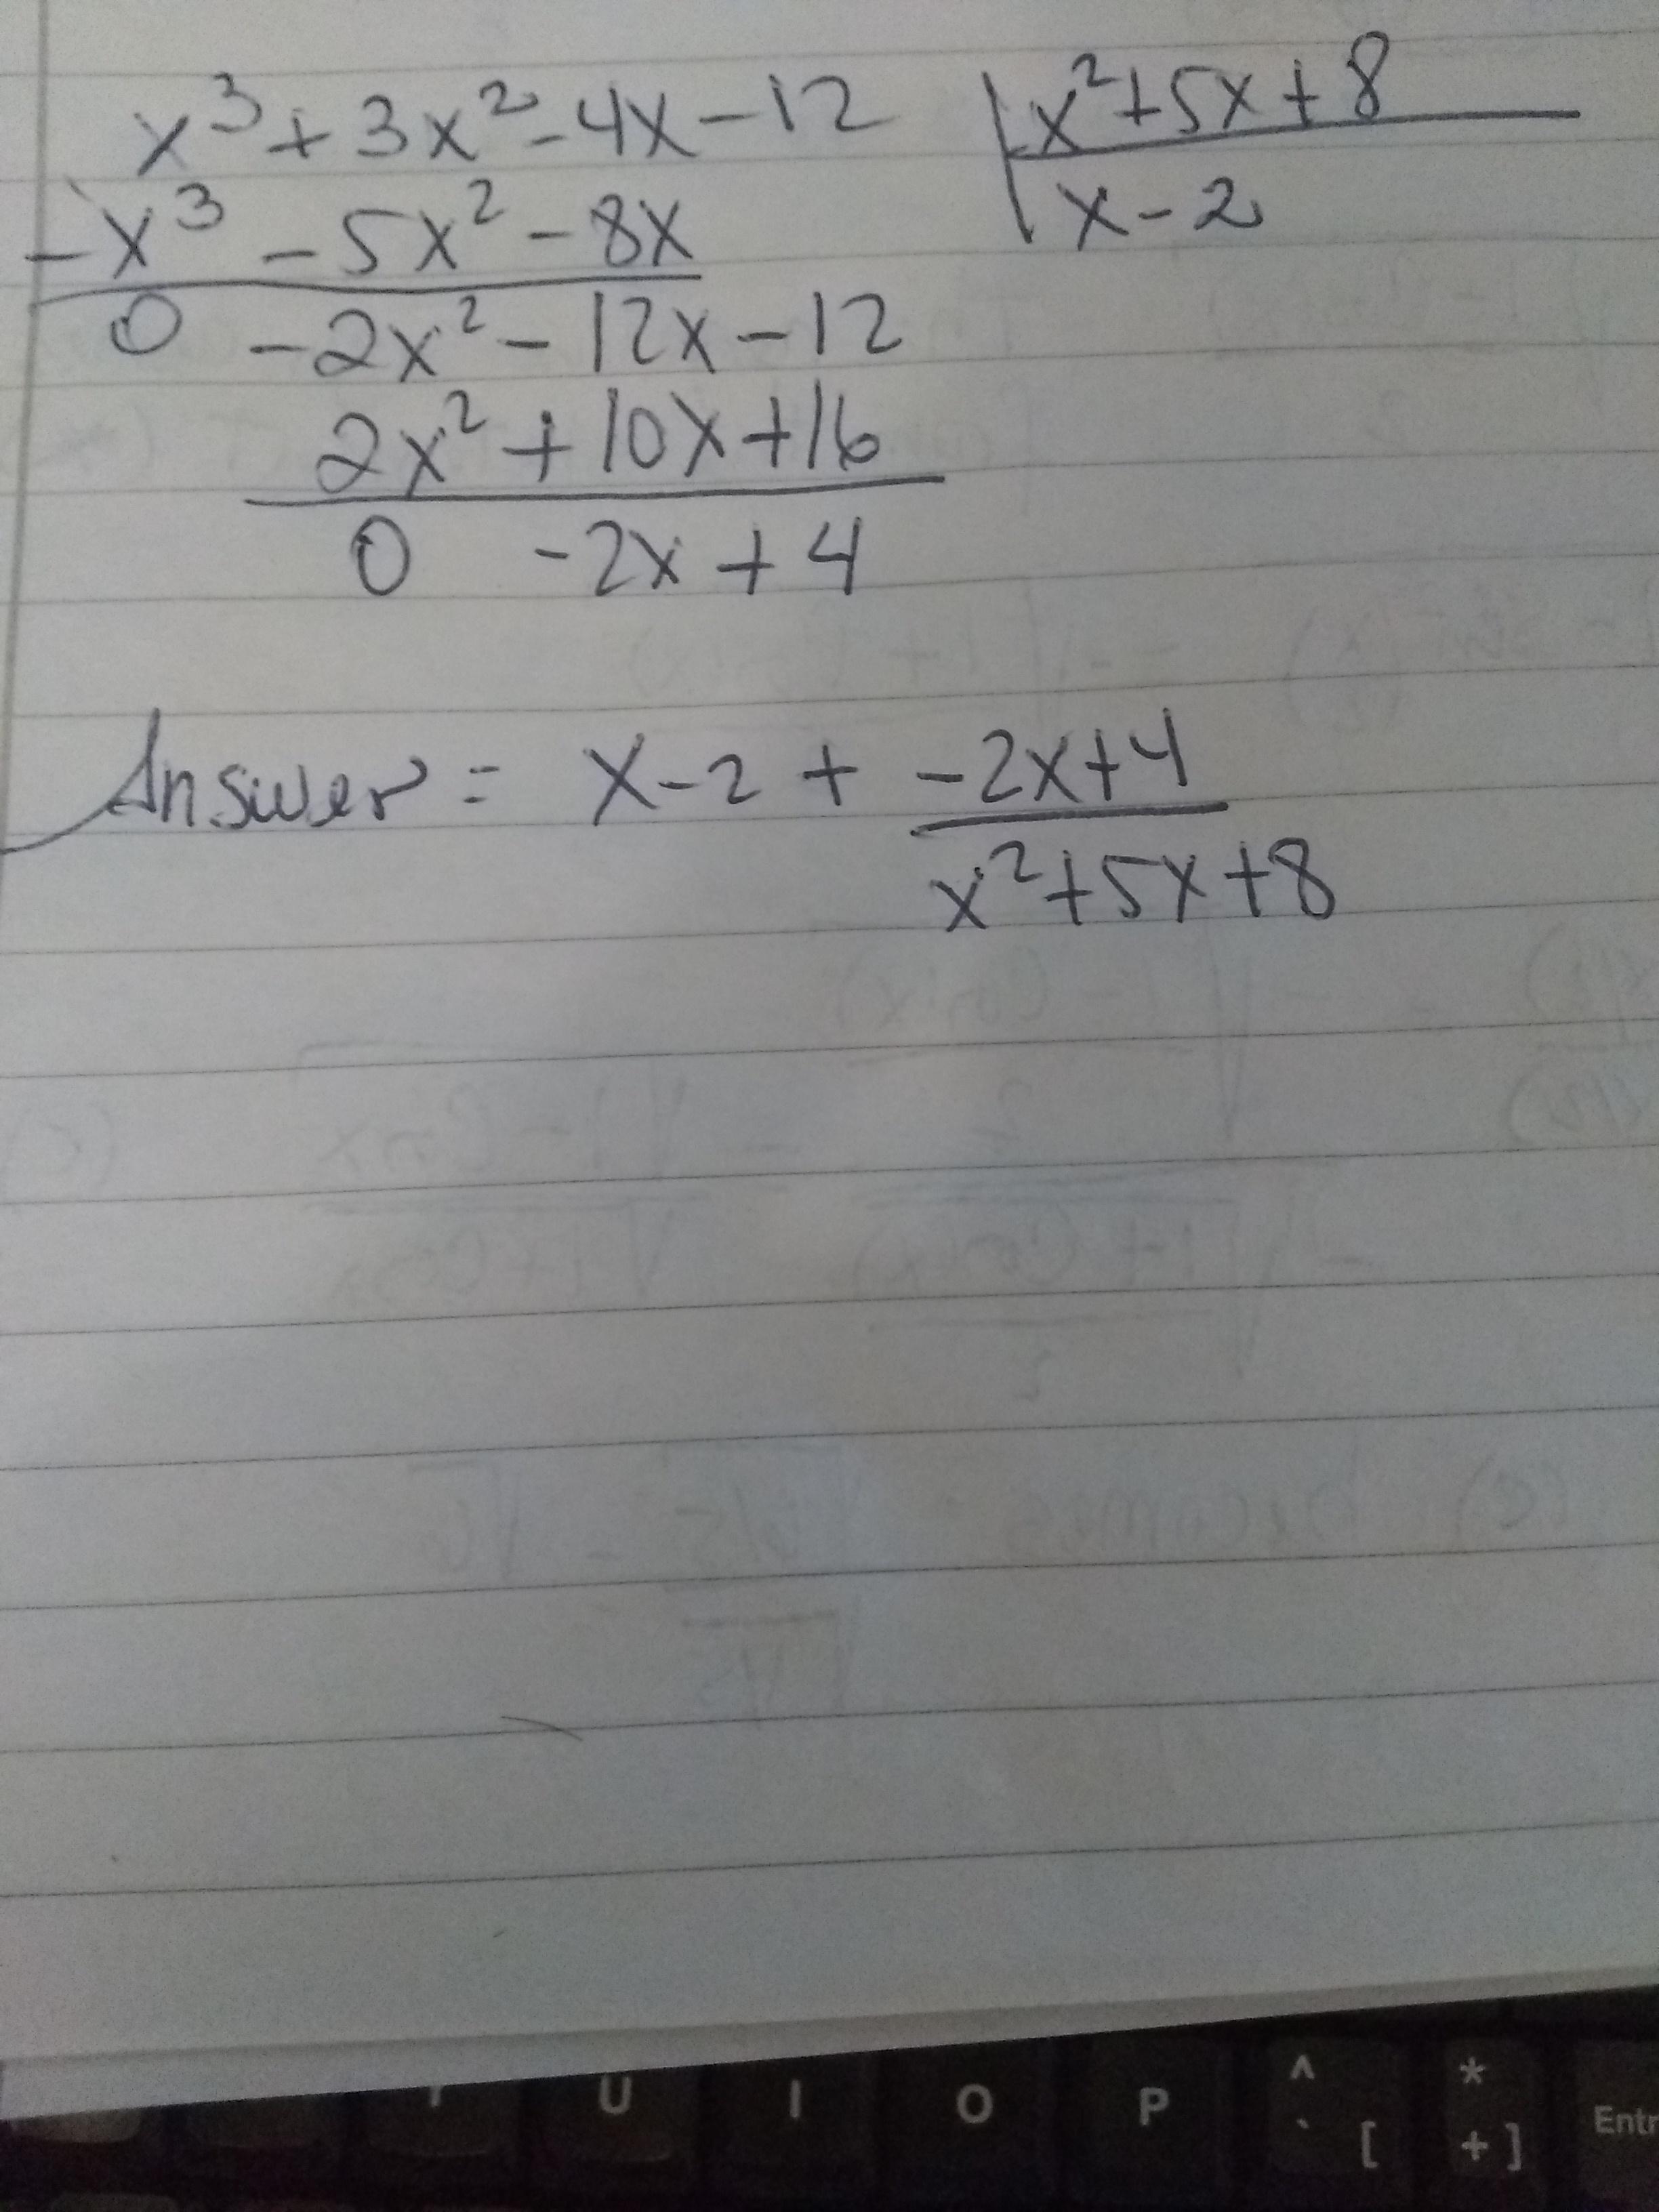 x³ + 3x² - 4x - 12 | x² + 5x + 8
- x³ - 5x² - 8x x - 2
0 - 2x² - 12x - 12
2x² + 10x + 16
0 - 2x + 4
Answer = x - 2 + - 2x + 4
x² + 5x + 8
U I O P ^ ` [ * + ] Entr